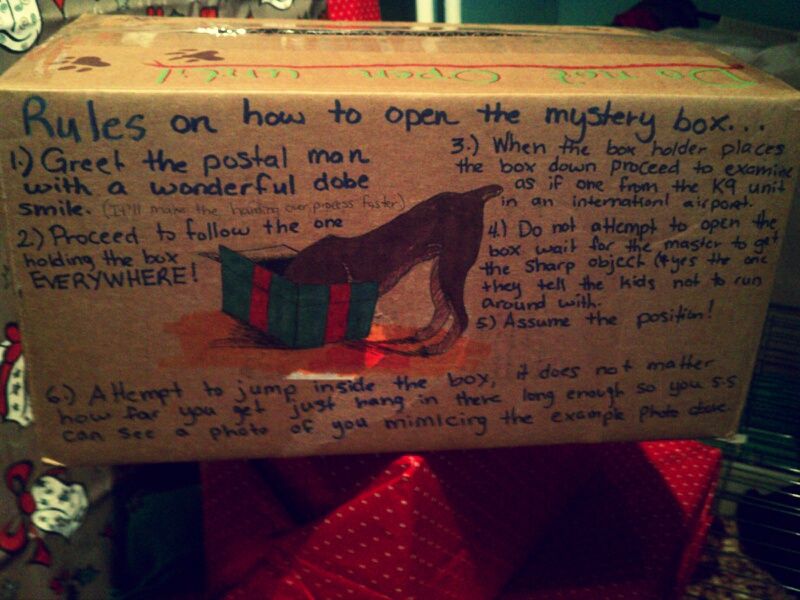 Do not Open until
Rules on how to open the mystery box...
1.) Greet the postal man
with a wonderful dobe
smile. (It'll make the handing over process faster)
2.) Proceed to follow the one
holding the box
EVERYWHERE!
3.) When the box holder places
the box down proceed to examine
as if one from the K9 unit
in an internationl airport.
4.) Do not attempt to open the
box wait for the master to get
the sharp object (yes the one
they tell the kids not to run
around with.
5) Assume the position!
6.) Attempt to jump inside the box, it does not matter
how far you get just hang in there long enough so you s.s
can see a photo of you mimicing the example photo above